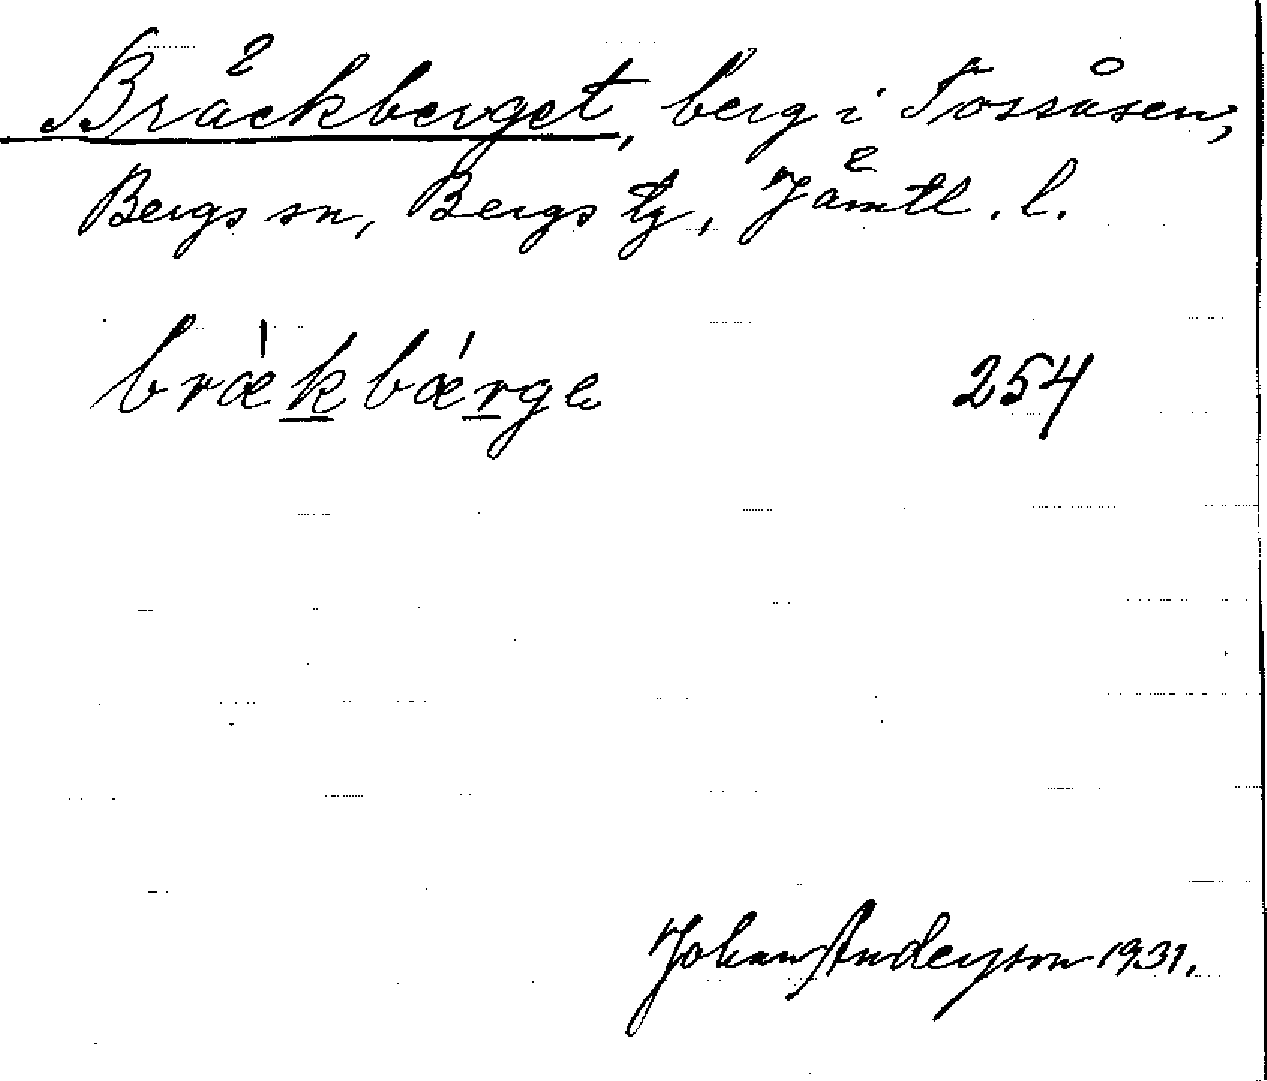 Bräckberget, berg i Tossåsen,
Bergs sn, Bergs tg, Jämtl. l.
bræ̍kbæ̍rge 254
Johan Anderson 1931.